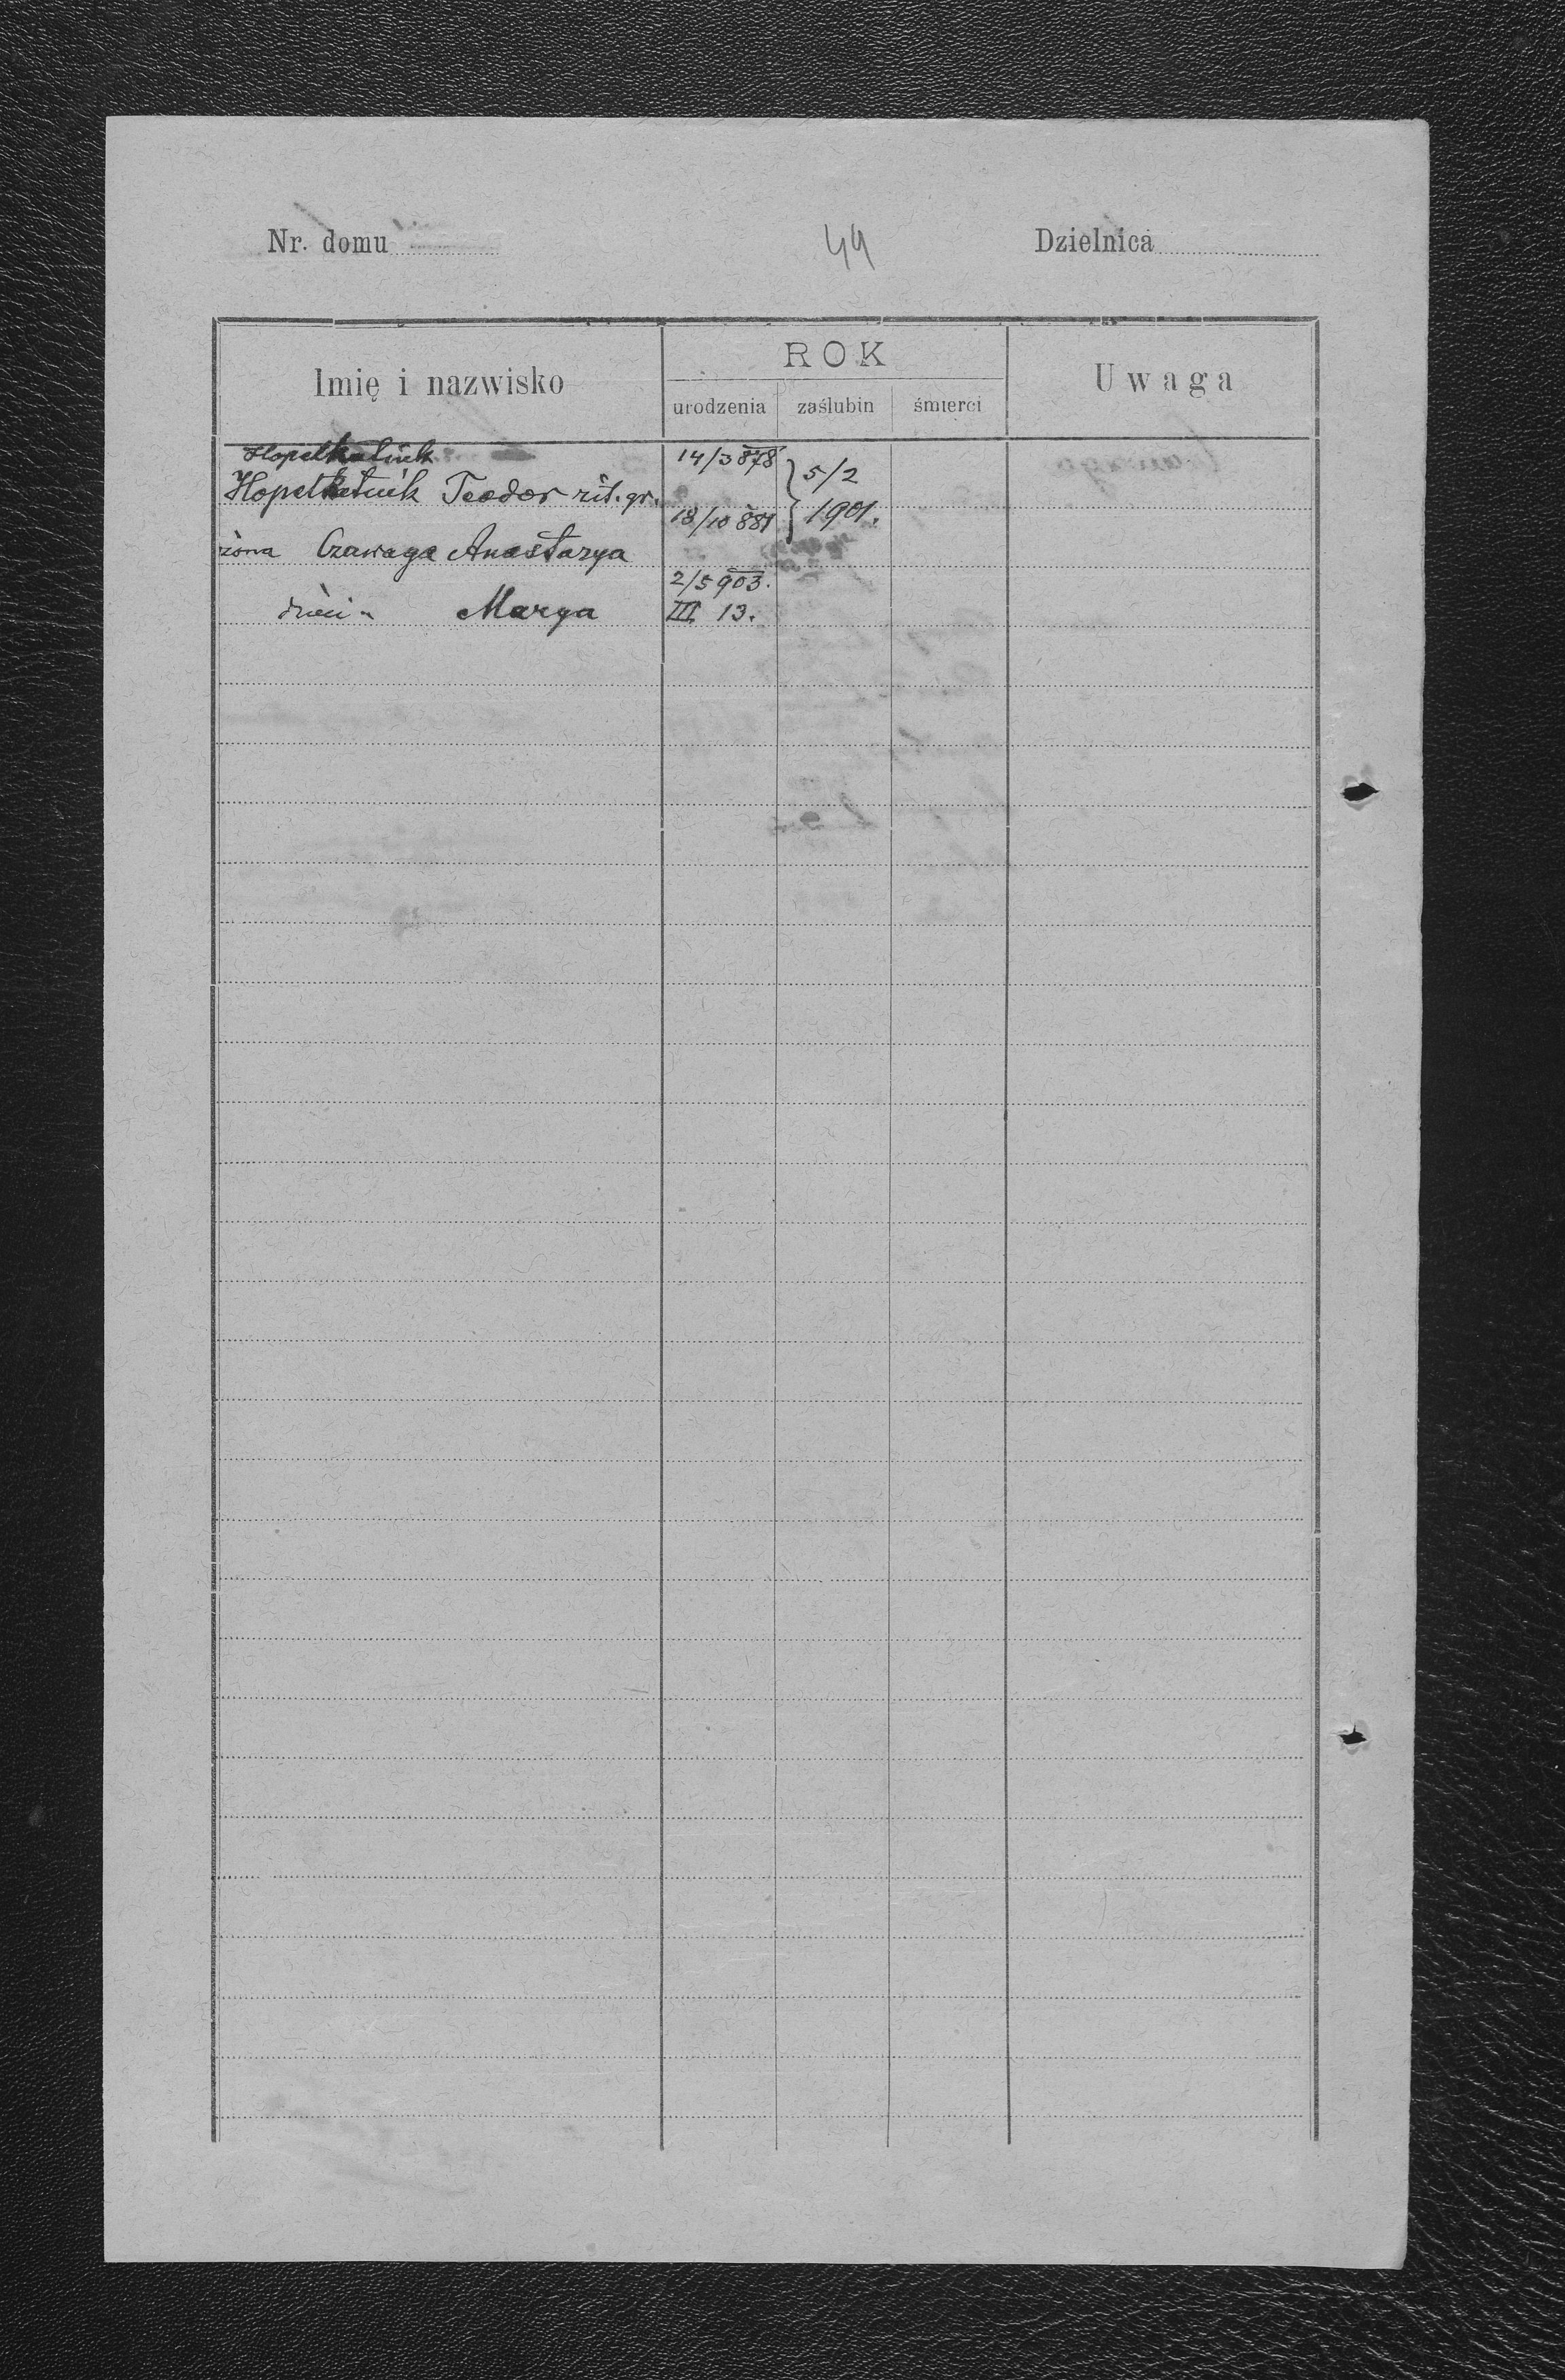 Nr. domu
44
Dzielnica
Imię i nazwisko
ROK
Uwaga
urodzenia zaślubin śmierci
14/3 878
Teodor rit. gr.
5/2
1901.
18/10 881
żona Czawaga Anastazya
2/5 903.
dzieci - Marya
III 13.